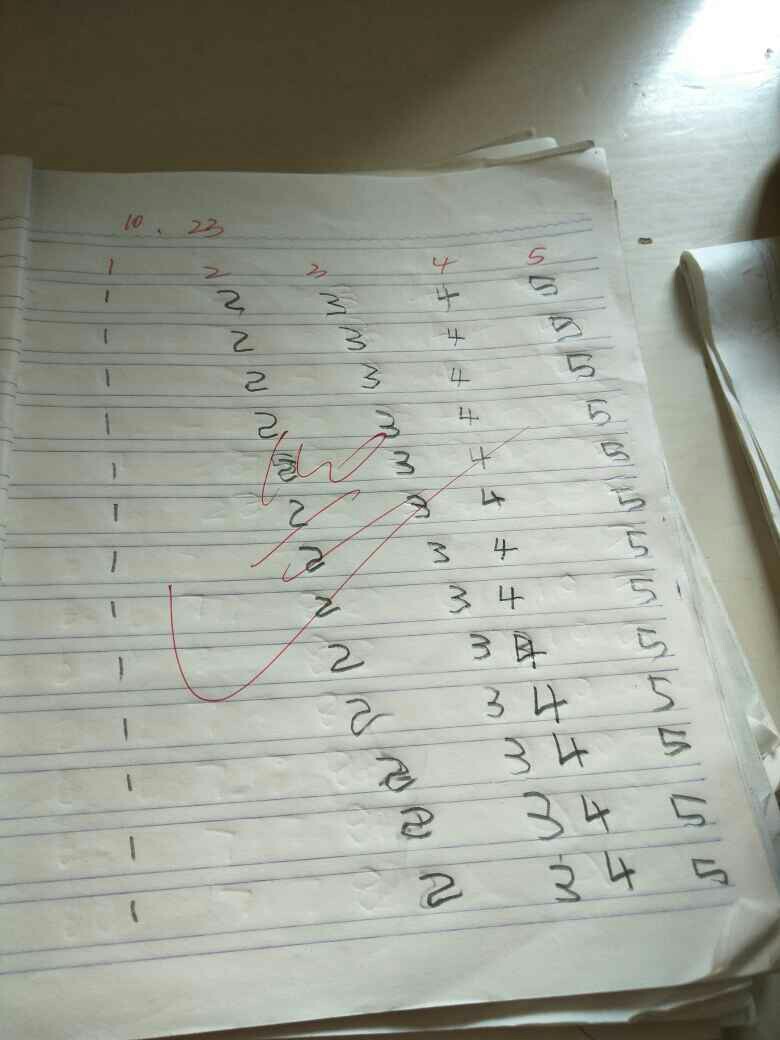 10. 23
1 2 3 4 5
1 2 3 4 5
1 2 3 4 5
1 2 3 4 5
1 2 3 4 5
1 2 3 4 5
1 2 3 4 5
1 2 3 4 5
1 2 3 4 5
1 2 3 4 5
1 2 3 4 5
1 2 3 4 5
1 2 3 4 5
1 2 3 4 5